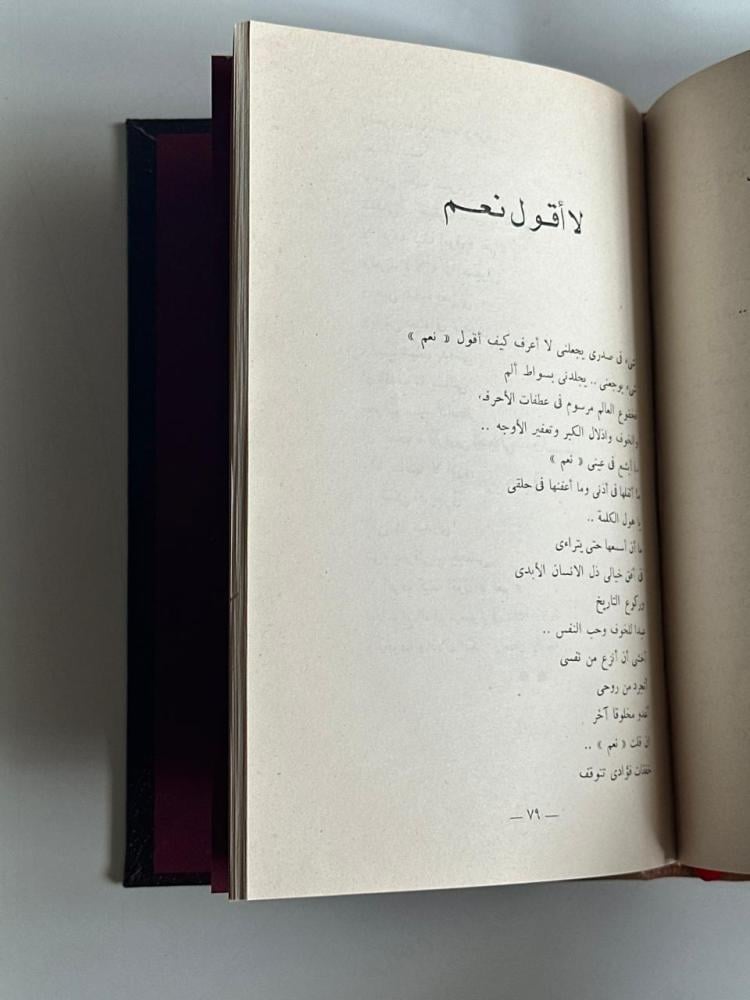 لا أقول نعم
شىء فى صدرى يجعلنى لا أعرف كيف أقول « نعم »
شىء يوجعنى .. يجلدنى بسواط ألم
فخضوع العالم مرسوم فى عطفات الأحرف،
والخوف واذلال الكبر وتعفير الأوجه ..
ما أبشع فى عينى « نعم »
ما أثقلها فى أذنى وما أعفنها فى حلقى
يا هول الكلمة ..
ما أن أسمعها حتى يتراءى
فى أفق خيالى ذل الانسان الأبدى
وركوع التاريخ
عبدا للخوف وحب النفس ..
أخشى أن أنزع من نفسى
أتجرد من روحى
أغدو مخلوقا آخر
ان قلت « نعم » ..
خفقات فؤادى تتوقف
— ٧٩ —